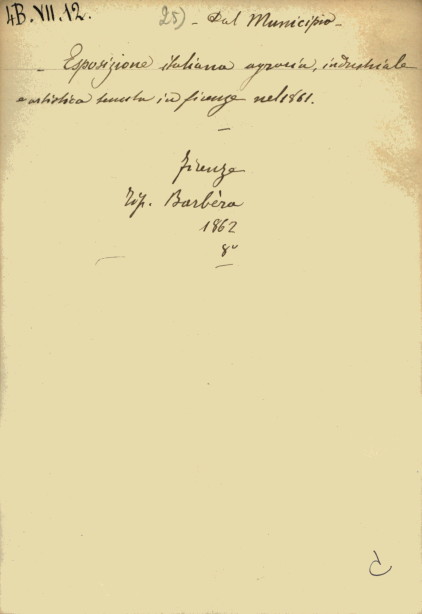 4B. VII. 12.
25) - Dal Municipio -
- Esposizione italiana agraria, industriale
e artistica tenuta in firenze nel 1861.
-
firenze
Tip. Barbèra
1862
8°